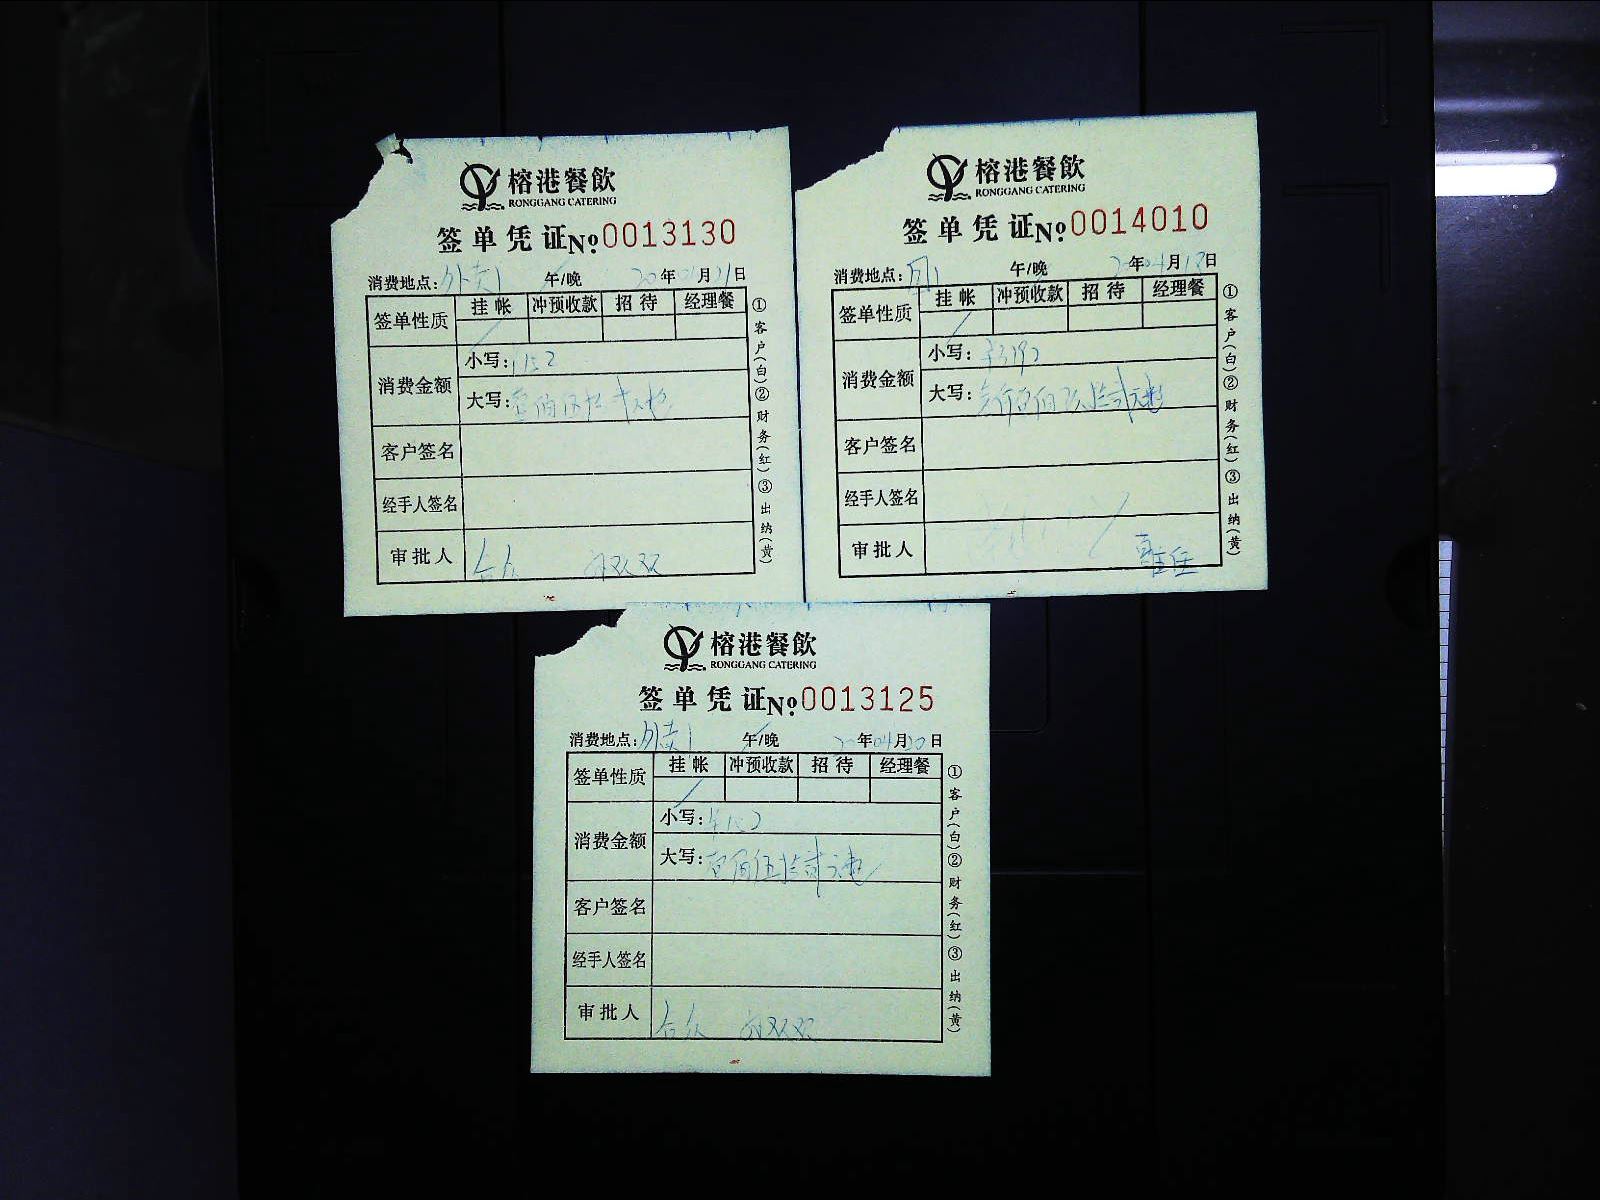 榕港餐飲
RONGGANG CATERING
签单凭证 No 0013130
消费地点:外卖1 午/晚 20年04月21日
签单性质 挂帐 冲预收款 招待 经理餐
消费金额 小写:152
大写:壹佰伍拾
客户签名
经手人签名
审批人 双双
①客户(白)②财务(红)③出纳(黄)
榕港餐飲
RONGGANG CATERING
签单凭证 No 0014010
消费地点: 午/晚 年04月18日
签单性质 挂帐 冲预收款 招待 经理餐
消费金额 小写:
大写:
客户签名
经手人签名
审批人 主任
①客户(白)②财务(红)③出纳(黄)
榕港餐飲
RONGGANG CATERING
签单凭证 No 0013125
消费地点:外卖1 午/晚 20年04月20日
签单性质 挂帐 冲预收款 招待 经理餐
消费金额 小写:
大写:壹佰伍拾贰元
客户签名
经手人签名
审批人 双双
①客户(白)②财务(红)③出纳(黄)